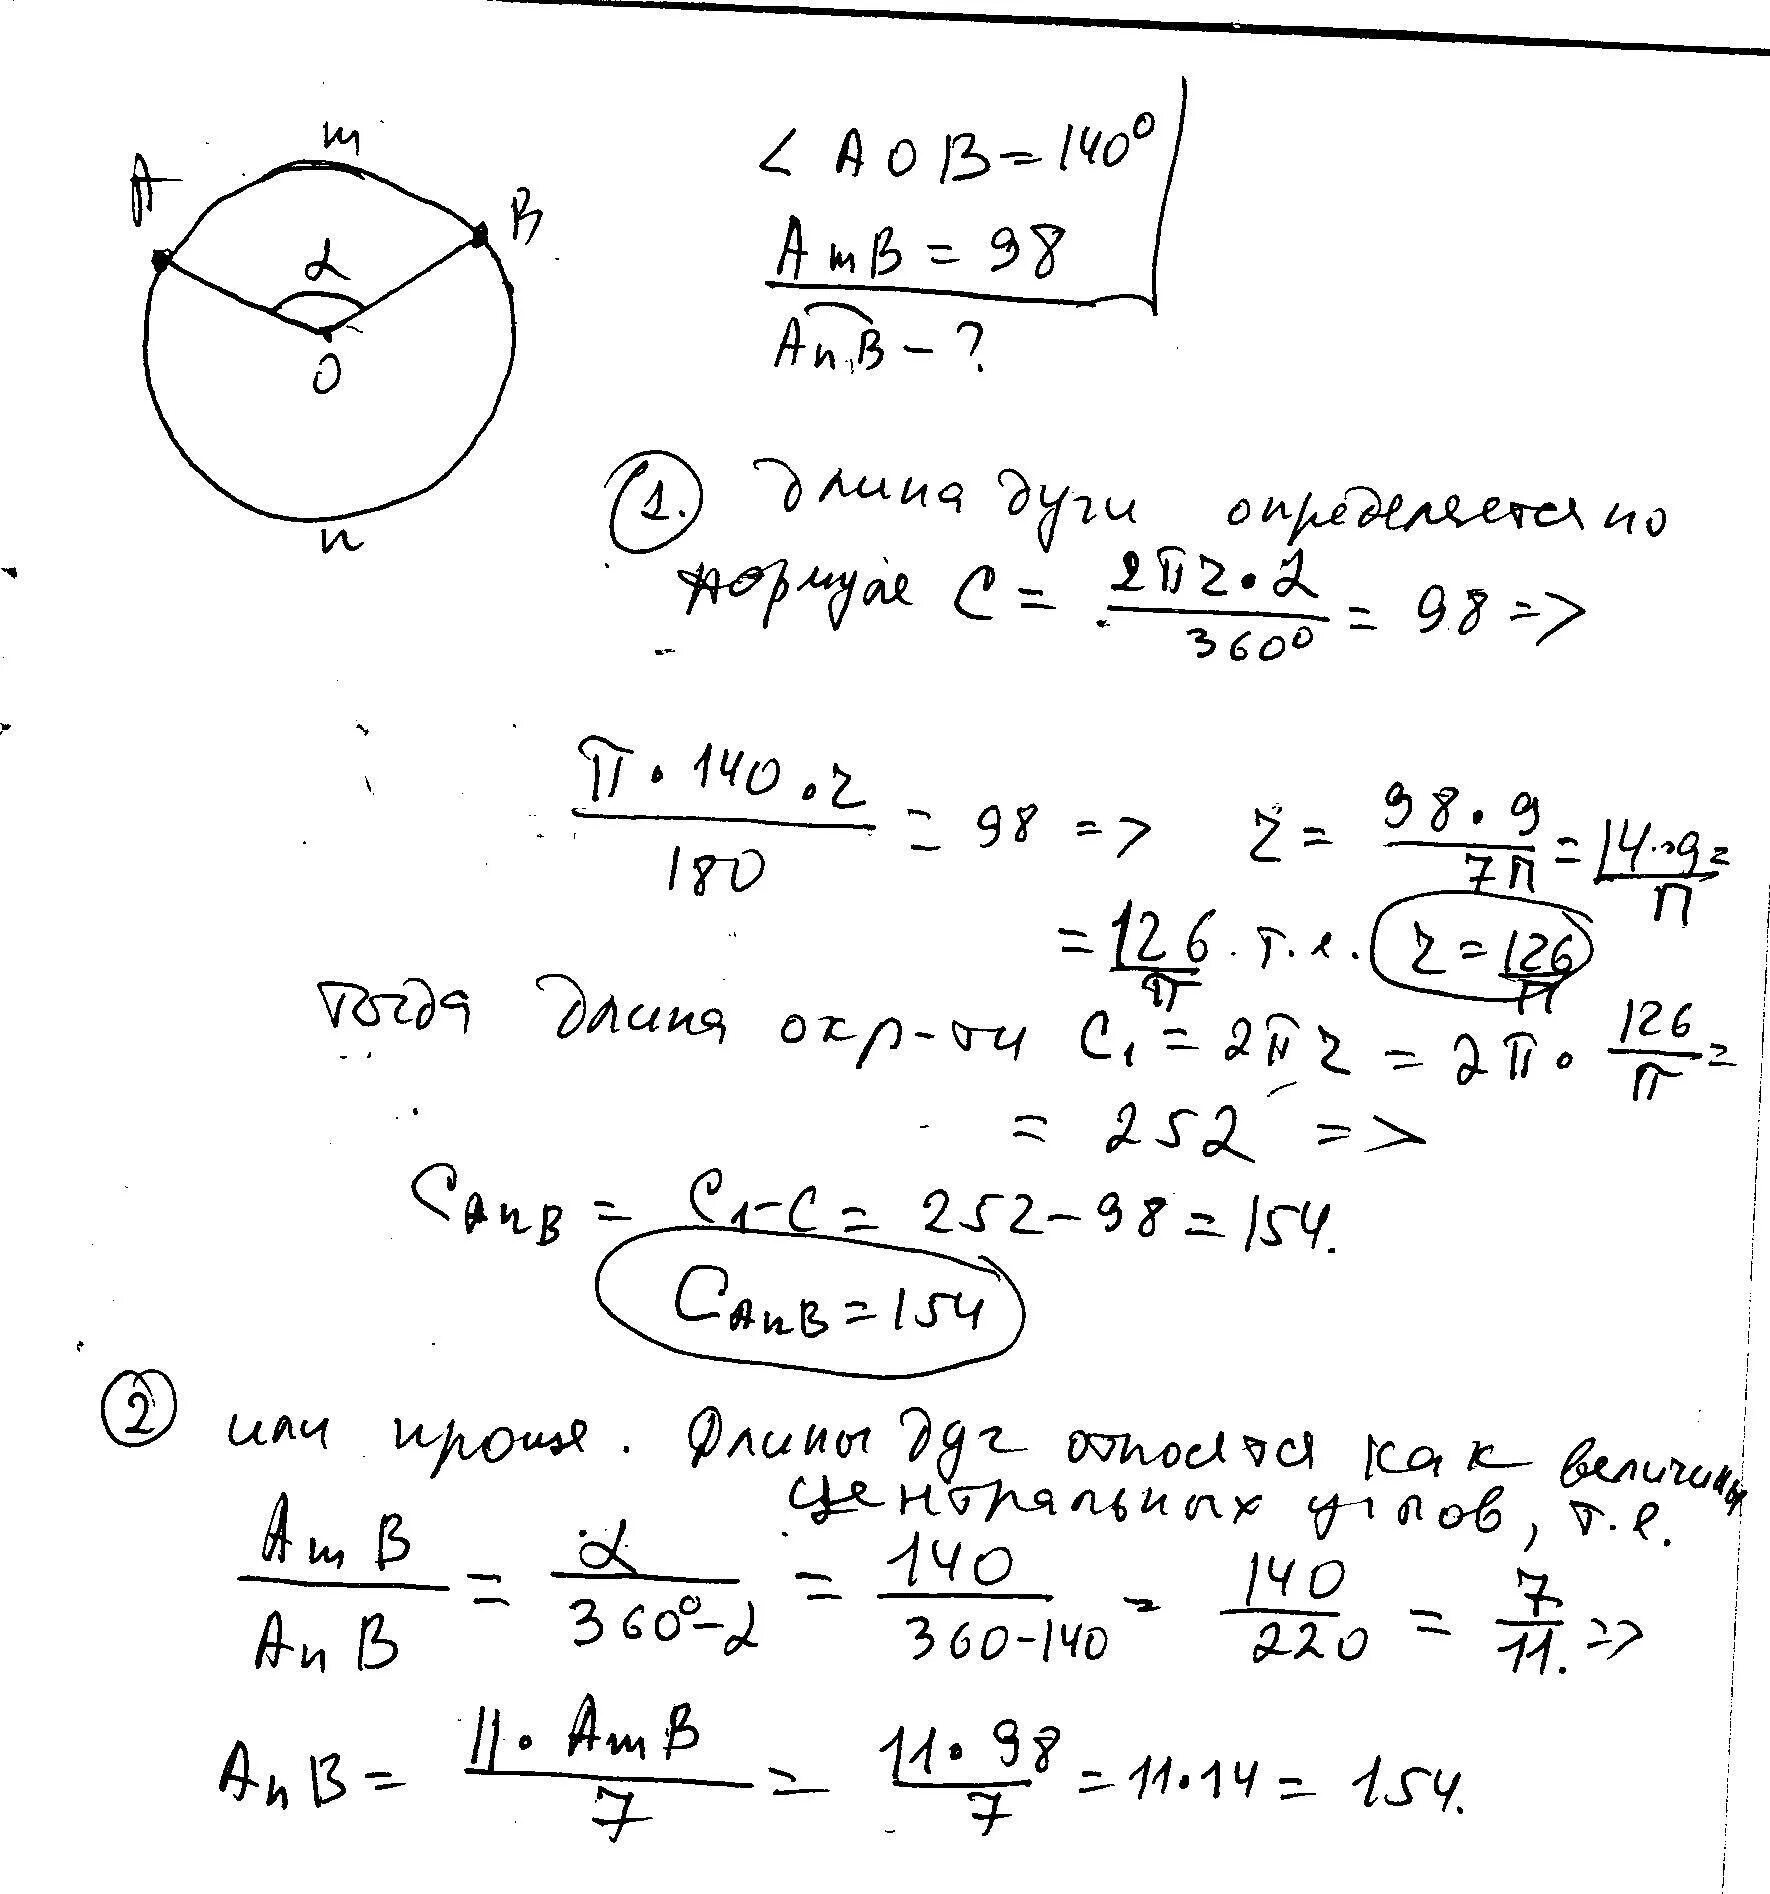 m
A
B
α
O
n
∠ AOB = 140°
AmB = 98
AnB - ?
1. Длина дуги определяется по
формуле C = 2πr · α / 360° = 98 =>
π · 140 · r / 180 = 98 => r = 98 · 9 / 7π = 14 · 9 / π =
= 126 / π . т.е. r = 126 / π
тогда длина окр-ти C₁ = 2πr = 2π · 126 / π =
= 252 =>
C AnB = C₁ - C = 252 - 98 = 154.
C AnB = 154
2 или проще. Длины дуг относятся как величины
центральных углов, т.е.
AmB / AnB = α / 360° - α = 140 / 360 - 140 = 140 / 220 = 7 / 11. =>
AnB = 11 · AmB / 7 = 11 · 98 / 7 = 11 · 14 = 154.